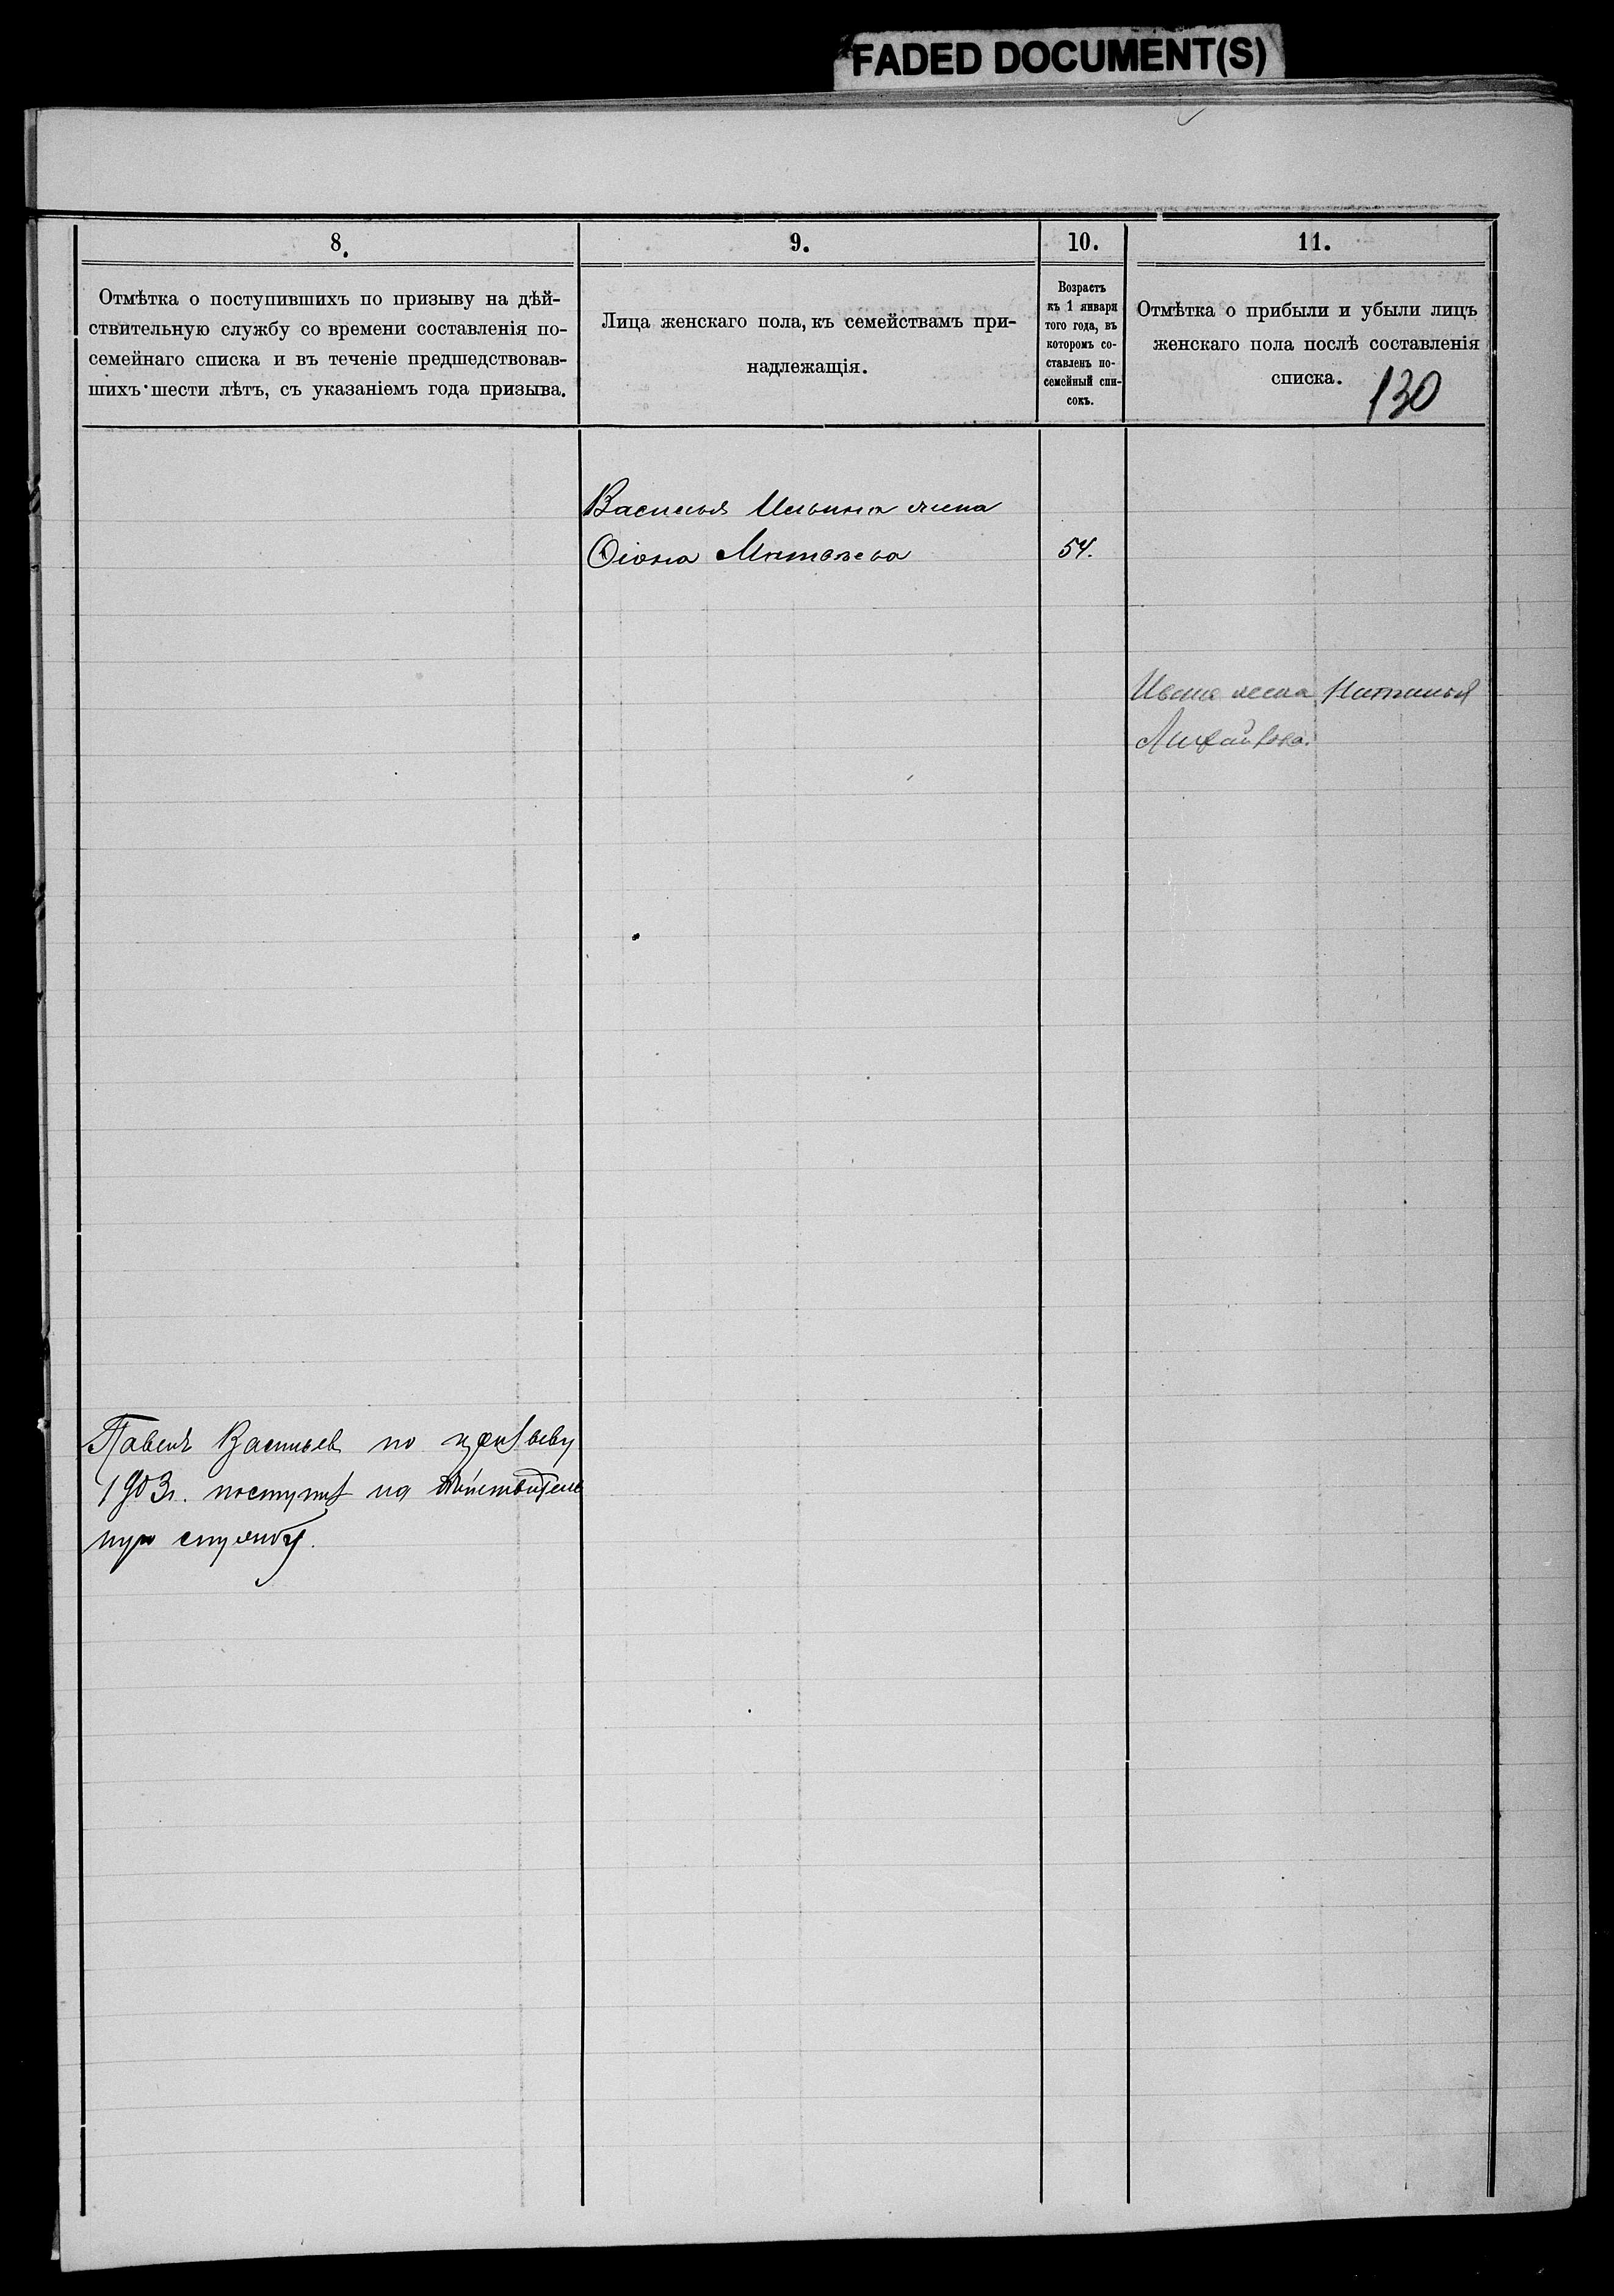 FADED DOCUMENT(S)
8.
Отмѣтка о поступившихъ по призыву на дѣй-
ствительную службу со времени составленія по-
семейнаго списка и въ теченіе предшедствовав-
шихъ шести лѣтъ, съ указаніемъ года призыва.
9.
Лица женскаго пола, къ семействамъ при-
надлежащія.
10.
Возрастъ
къ 1 января
того года, въ
которомъ со-
ставленъ по-
семейный спи-
сокъ.
11.
Отмѣтка о прибыли и убыли лицъ
женскаго пола послѣ составленія
списка.
130
Василья Ильина жена
Матвѣева
54.
Ивана жена
Павелъ Васильев по призыву
1903 г. поступил на дѣйствитель
ную службу.